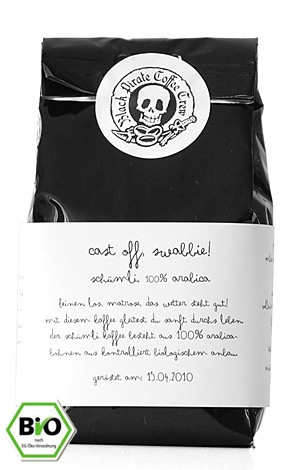 Black Pirate Coffee Crew
cast off, swabbie!
schümli, 100% arabica
leinen los, matrose, das wetter steht gut!
mit diesem kaffee gleitest du sanft durchs leben
der schümli kaffee besteht aus 100% arabica-
bohnen aus kontrolliert biologischem anbau.
geröstet am: 15.04.2010
Bio
nach
EG-Öko-Verordnung